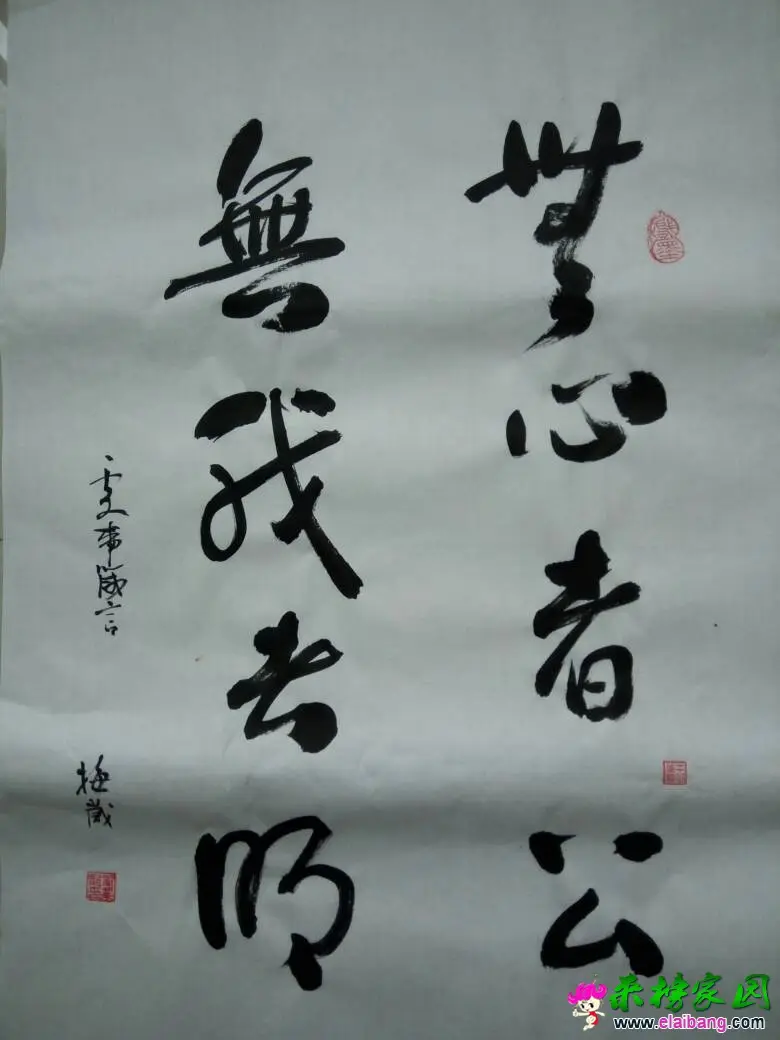 無心者公
無我者明
處事箴言
来榜家园
www.elaibang.com